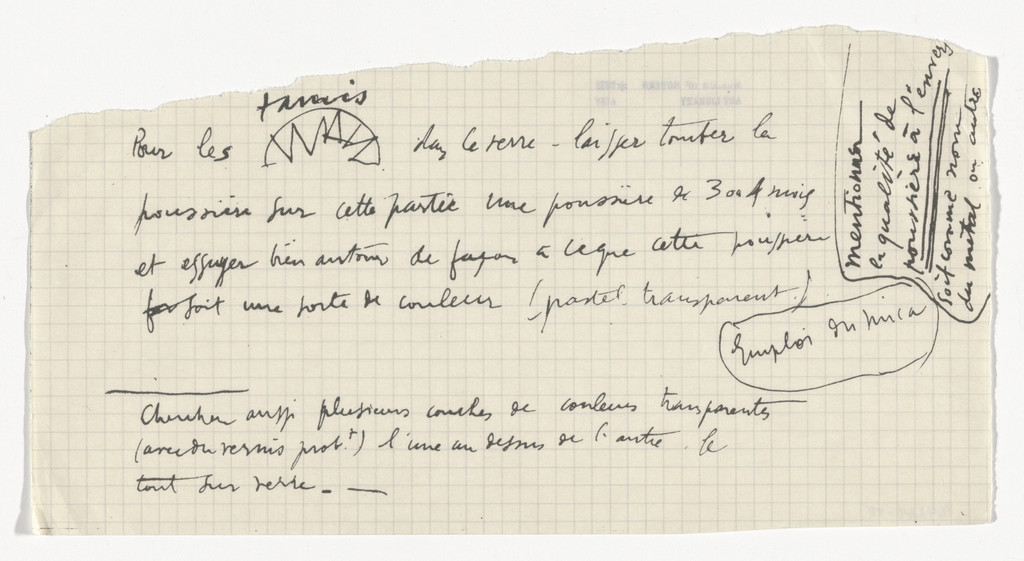 tamis
Pour les dans le verre - laisser tomber la
poussière sur cette partie une poussière de 3 ou 4 mois
et essuyer bien autour de façon à ce que cette poussière
soit une sorte de couleur (pastel transparent)
Emploi du mica
mentionner
la qualité de
poussière à l'envers
soit comme nom
du métal ou autre
Chercher aussi plusieurs couches de couleurs transparentes
(avec du vernis probt.) l'une au dessus de l'autre. le
tout sur verre. —